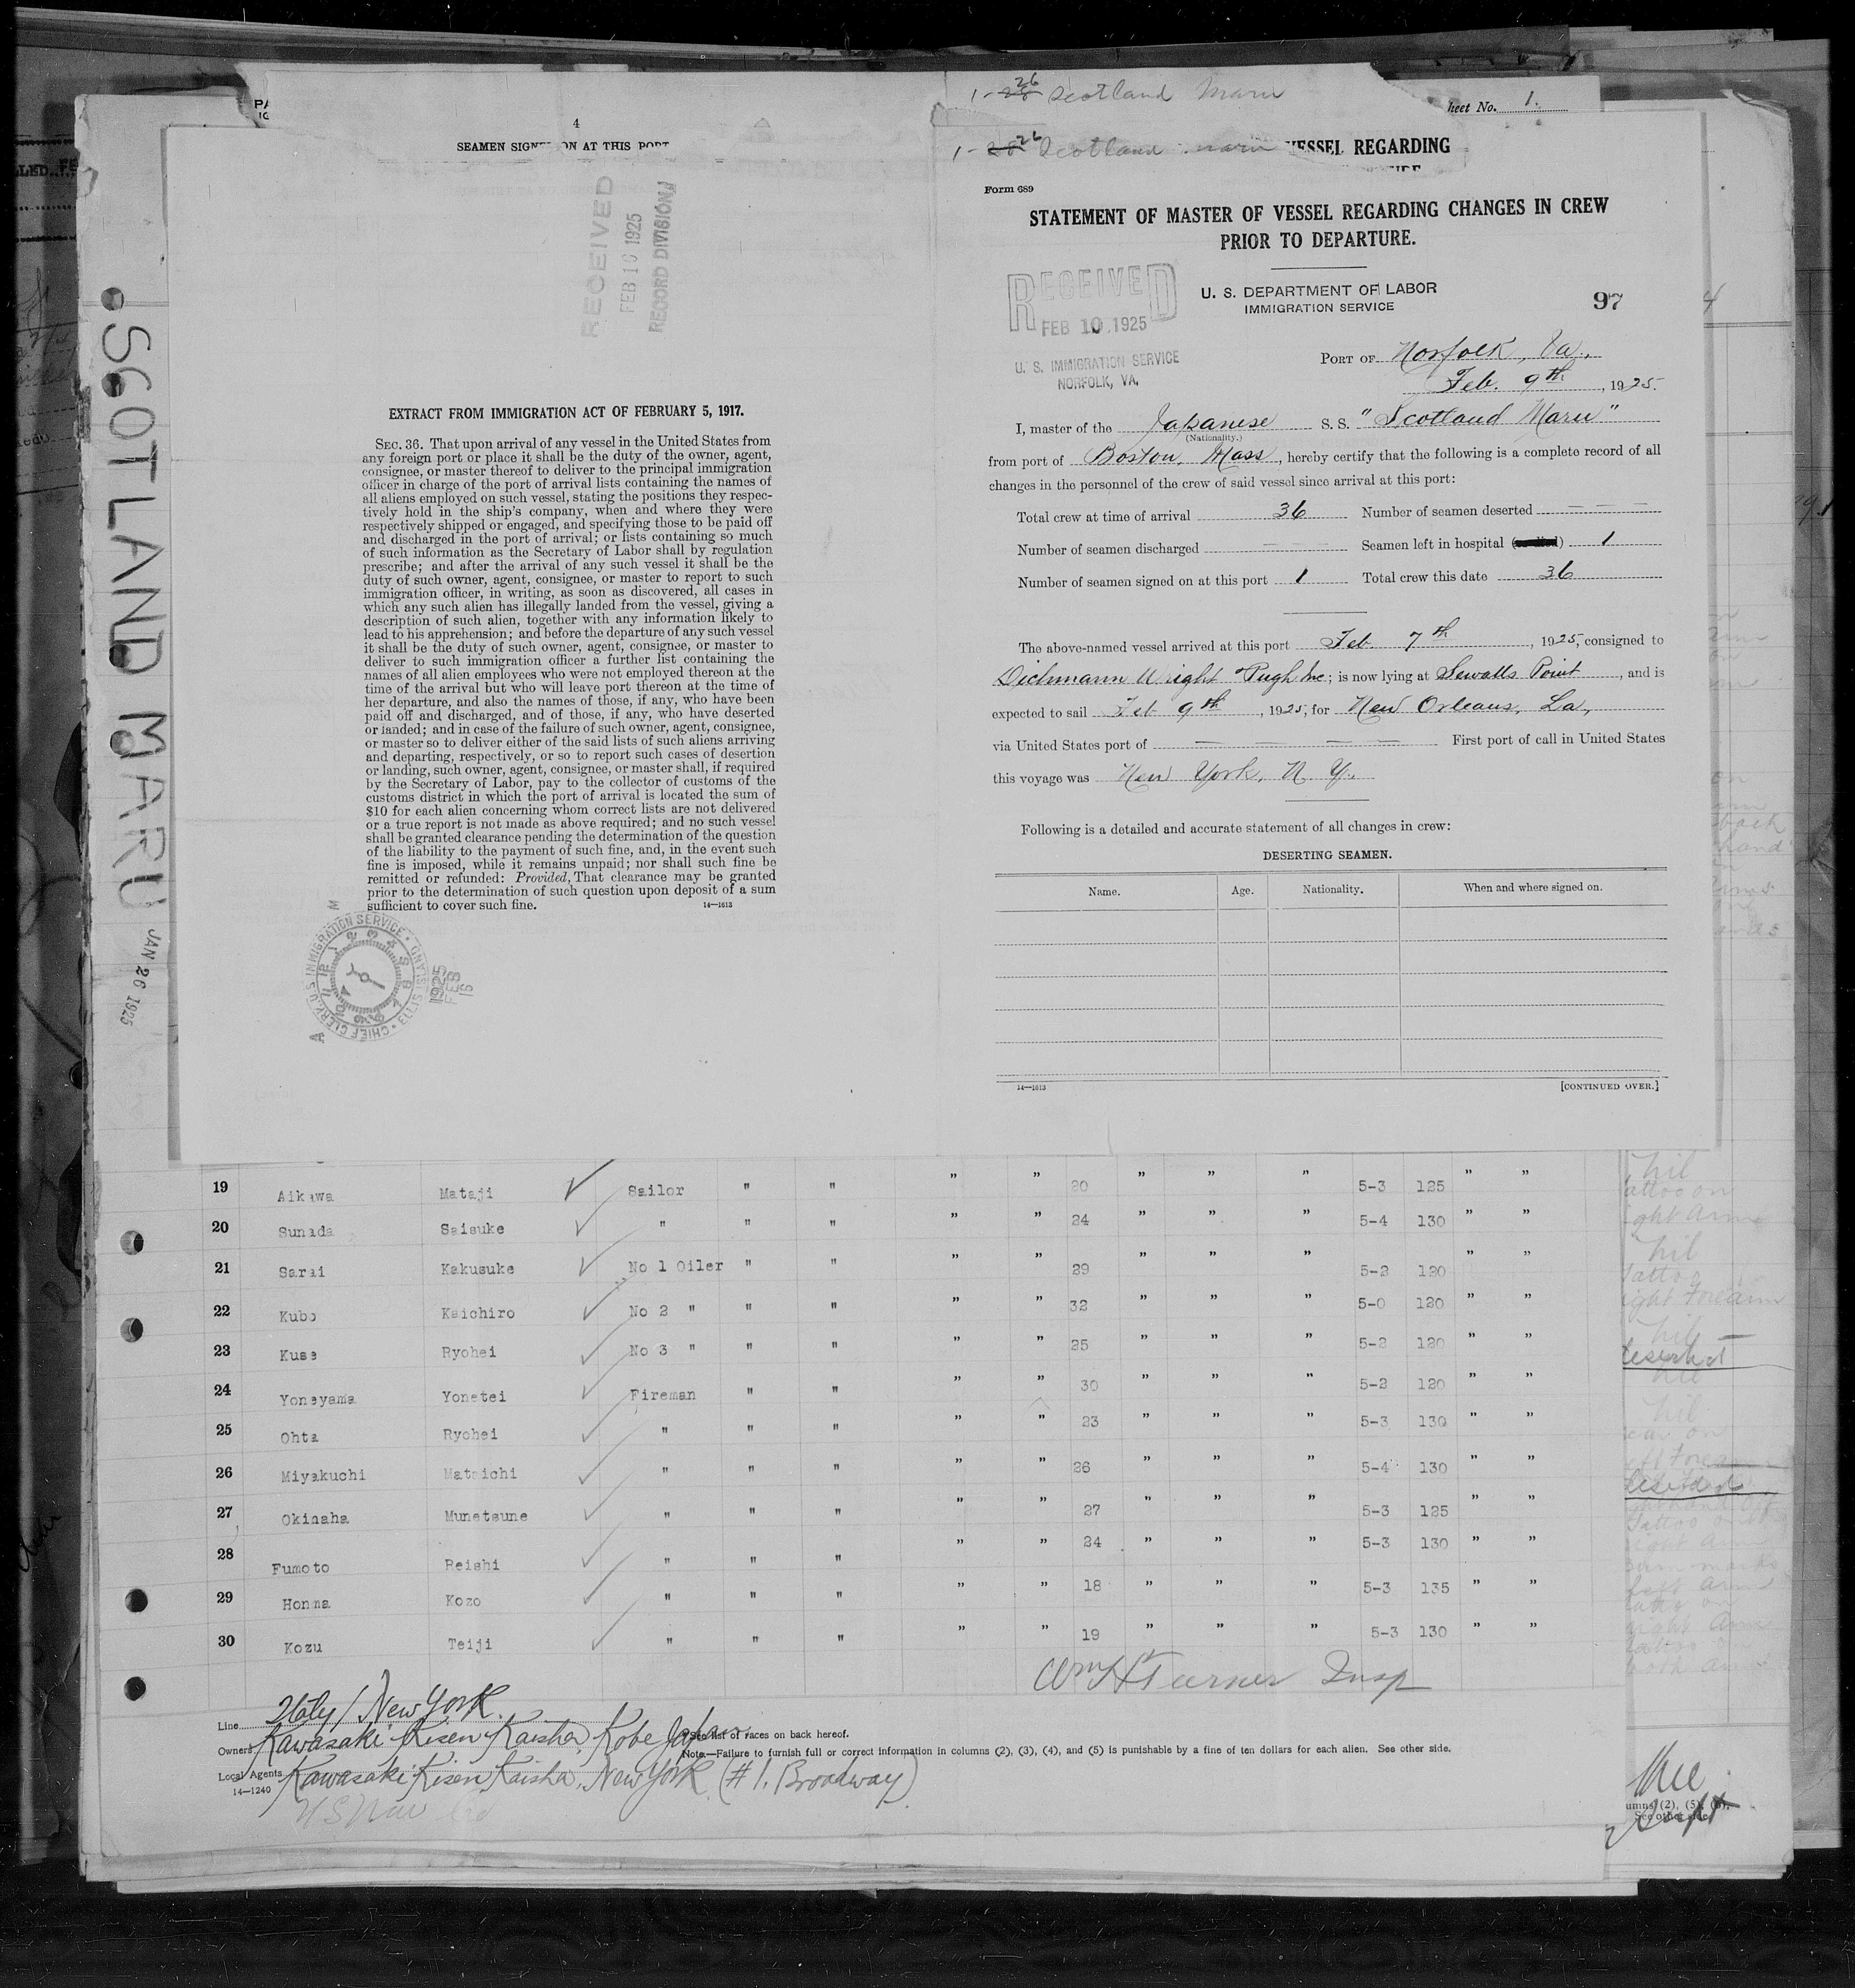 1-26 Scotland Maru
heet No. 1.
4
SEAMEN SIGNED ON AT THIS PORT
1-26 Scotland Maru VESSEL REGARDING
RECEIVED
FEB 16 1925
RECORD DIVISION
EXTRACT FROM IMMIGRATION ACT OF FEBRUARY 5, 1917.
SEC. 36. That upon arrival of any vessel in the United States from
any foreign port or place it shall be the duty of the owner, agent,
consignee, or master thereof to deliver to the principal immigration
officer in charge of the port of arrival lists containing the names of
all aliens employed on such vessel, stating the positions they respec-
tively hold in the ship's company, when and where they were
respectively shipped or engaged, and specifying those to be paid off
and discharged in the port of arrival; or lists containing so much
of such information as the Secretary of Labor shall by regulation
prescribe; and after the arrival of any such vessel it shall be the
duty of such owner, agent, consignee, or master to report to such
immigration officer, in writing, as soon as discovered, all cases in
which any such alien has illegally landed from the vessel, giving a
description of such alien, together with any information likely to
lead to his apprehension; and before the departure of any such vessel
it shall be the duty of such owner, agent, consignee, or master to
deliver to such immigration officer a further list containing the
names of all alien employees who were not employed thereon at the
time of the arrival but who will leave port thereon at the time of
her departure, and also the names of those, if any, who have been
paid off and discharged, and of those, if any, who have deserted
or landed; and in case of the failure of such owner, agent, consignee,
or master so to deliver either of the said lists of such aliens arriving
and departing, respectively, or so to report such cases of desertion
or landing, such owner, agent, consignee, or master shall, if required
by the Secretary of Labor, pay to the collector of customs of the
customs district in which the port of arrival is located the sum of
$10 for each alien concerning whom correct lists are not delivered
or a true report is not made as above required; and no such vessel
shall be granted clearance pending the determination of the question
of the liability to the payment of such fine, and, in the event such
fine is imposed, while it remains unpaid; nor shall such fine be
remitted or refunded: Provided, That clearance may be granted
prior to the determination of such question upon deposit of a sum
sufficient to cover such fine. 14—1613
CHIEF CLERK, U.S. IMMIGRATION SERVICE · ELLIS ISLAND
1925 FEB 16
SCOTLAND MARU JAN 26 1925
Form 689
STATEMENT OF MASTER OF VESSEL REGARDING CHANGES IN CREW
PRIOR TO DEPARTURE.
RECEIVED
FEB 10 1925
U. S. IMMIGRATION SERVICE
NORFOLK, VA.
U. S. DEPARTMENT OF LABOR
IMMIGRATION SERVICE
97
PORT OF Norfolk, Va.,
Feb. 9th, 1925.
I, master of the Japanese S. S. "Scotland Maru"
(Nationality.)
from port of Boston, Mass, hereby certify that the following is a complete record of all
changes in the personnel of the crew of said vessel since arrival at this port:
Total crew at time of arrival 36 Number of seamen deserted — — —
Number of seamen discharged Seamen left in hospital 1
Number of seamen signed on at this port 1 Total crew this date 36
The above-named vessel arrived at this port Feb. 7th, 1925, consigned to
Dichmann Wright & Pugh Inc; is now lying at Sewalls Point, and is
expected to sail Feb 9th, 1925, for New Orleans, La,
via United States port of — — — — First port of call in United States
this voyage was New York, N. Y.
Following is a detailed and accurate statement of all changes in crew:
DESERTING SEAMEN.
Name. Age. Nationality. When and where signed on.
14—1613 [CONTINUED OVER.]
19 Aikawa Mataji Sailor " " " " 20 " " " 5-3 125 " "
20 Sunada Saisuke " " " " " 24 " " " 5-4 130 " "
21 Sarai Kakusuke No 1 Oiler " " " " 29 " " " 5-2 120 " "
22 Kubo Kaichiro No 2 " " " " " 32 " " " 5-0 120 " "
23 Kuse Ryohei No 3 " " " " " 25 " " " 5-2 120 " "
24 Yoneyama Yonetei Fireman " " " " 30 " " " 5-2 120 " "
25 Ohta Ryohei " " " " " 23 " " " 5-3 130 " "
26 Miyakuchi Mataichi " " " " " 26 " " " 5-4 130 " "
27 Okinaha Munetsune " " " " " 27 " " " 5-3 125 " "
28 Fumoto Reishi " " " " " 24 " " " 5-3 130 " "
29 Honma Kozo " " " " " 18 " " " 5-3 135 " "
30 Kozu Teiji " " " " " 19 " " " 5-3 130 " "
Wm H Turner Insp
Line Italy / New York.
Owners Kawasaki Kisen Kaisha, Kobe Japan
See list of races on back hereof.
Note.—Failure to furnish full or correct information in columns (2), (3), (4), and (5) is punishable by a fine of ten dollars for each alien. See other side.
Local Agents Kawasaki Kisen Kaisha, New York (# 1. Broadway)
14—1240